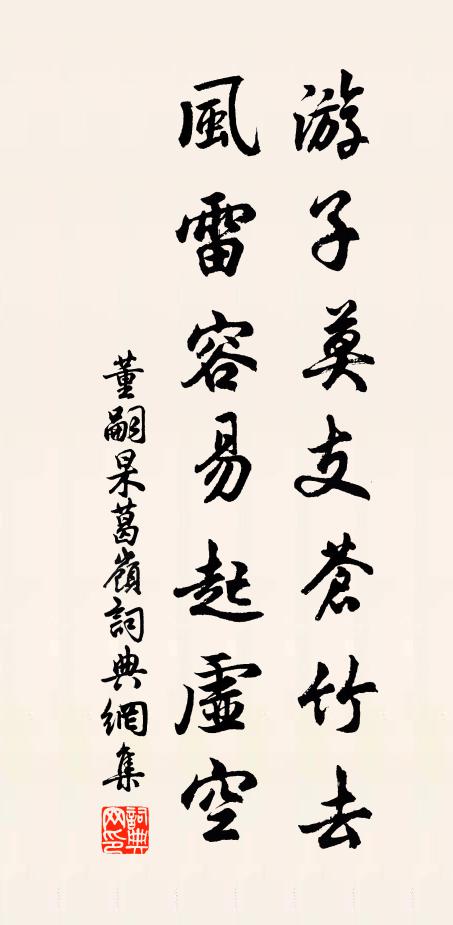 游子莫支蒼竹去
風雷容易起虛空
董嗣杲葛嶺詞典網集
詞典網印